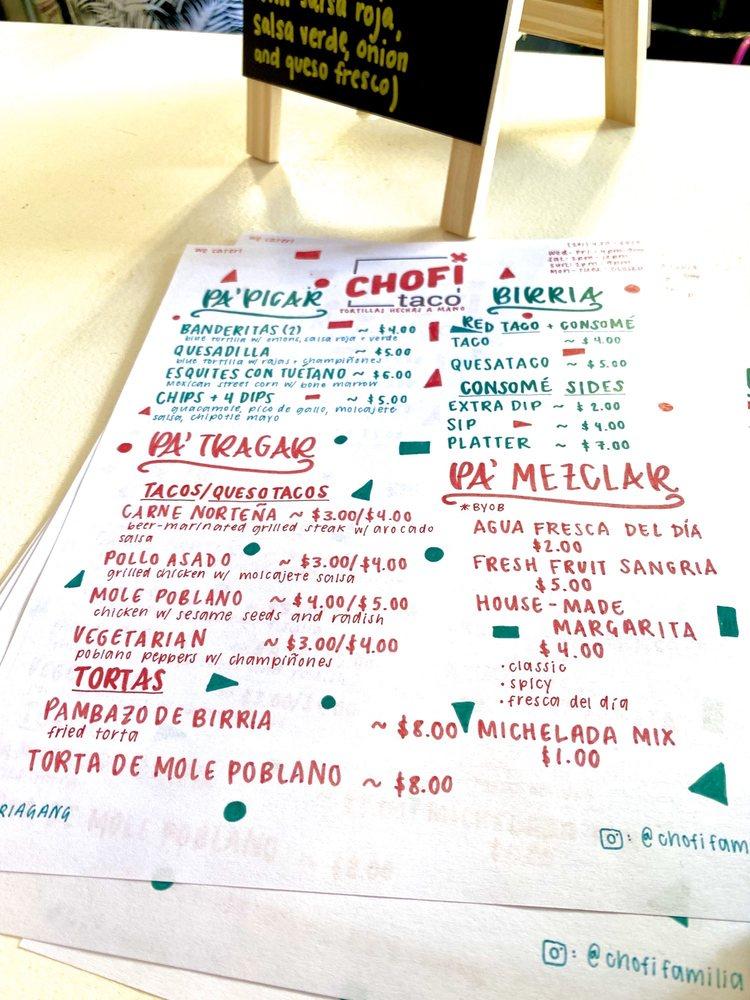 salsa roja,
salsa verde, onion
and queso fresco)
we cater!
we cater!
CHOFI
taco
TORTILLAS HECHAS A MANO
PA' PICAR
BANDERITAS (2) ~ $4.00
blue tortilla w/ onions, salsa roja + verde
QUESADILLA ~ $5.00
blue tortilla w/ rajas + champiñones
ESQUITES CON TUETANO ~ $6.00
Mexican street corn w/ bone marrow
CHIPS + 4 DIPS ~ $5.00
guacamole, pico de gallo, molcajete
salsa, chipotle mayo
PA' TRAGAR
TACOS/QUESOTACOS
CARNE NORTEÑA ~ $3.00/$4.00
beer-marinated grilled steak w/ avocado
salsa
POLLO ASADO ~ $3.00/$4.00
grilled chicken w/ molcajete salsa
MOLE POBLANO ~ $4.00/$5.00
chicken w/ sesame seeds and radish
VEGETARIAN ~ $3.00/$4.00
poblano peppers w/ champiñones
TORTAS
PAMBAZO DE BIRRIA ~ $8.00
fried torta
TORTA DE MOLE POBLANO ~ $8.00
RIAGANG
BIRRIA
RED TACO + CONSOMÉ
TACO ~ $4.00
QUESATACO ~ $5.00
CONSOMÉ SIDES
EXTRA DIP ~ $2.00
SIP ~ $4.00
PLATTER ~ $7.00
PA' MEZCLAR
*BYOB
AGUA FRESCA DEL DÍA
$2.00
FRESH FRUIT SANGRIA
$5.00
HOUSE-MADE
MARGARITA
$4.00
• classic
• spicy
• fresca del día
MICHELADA MIX
$1.00
: @chofifam
: @chofifamilia